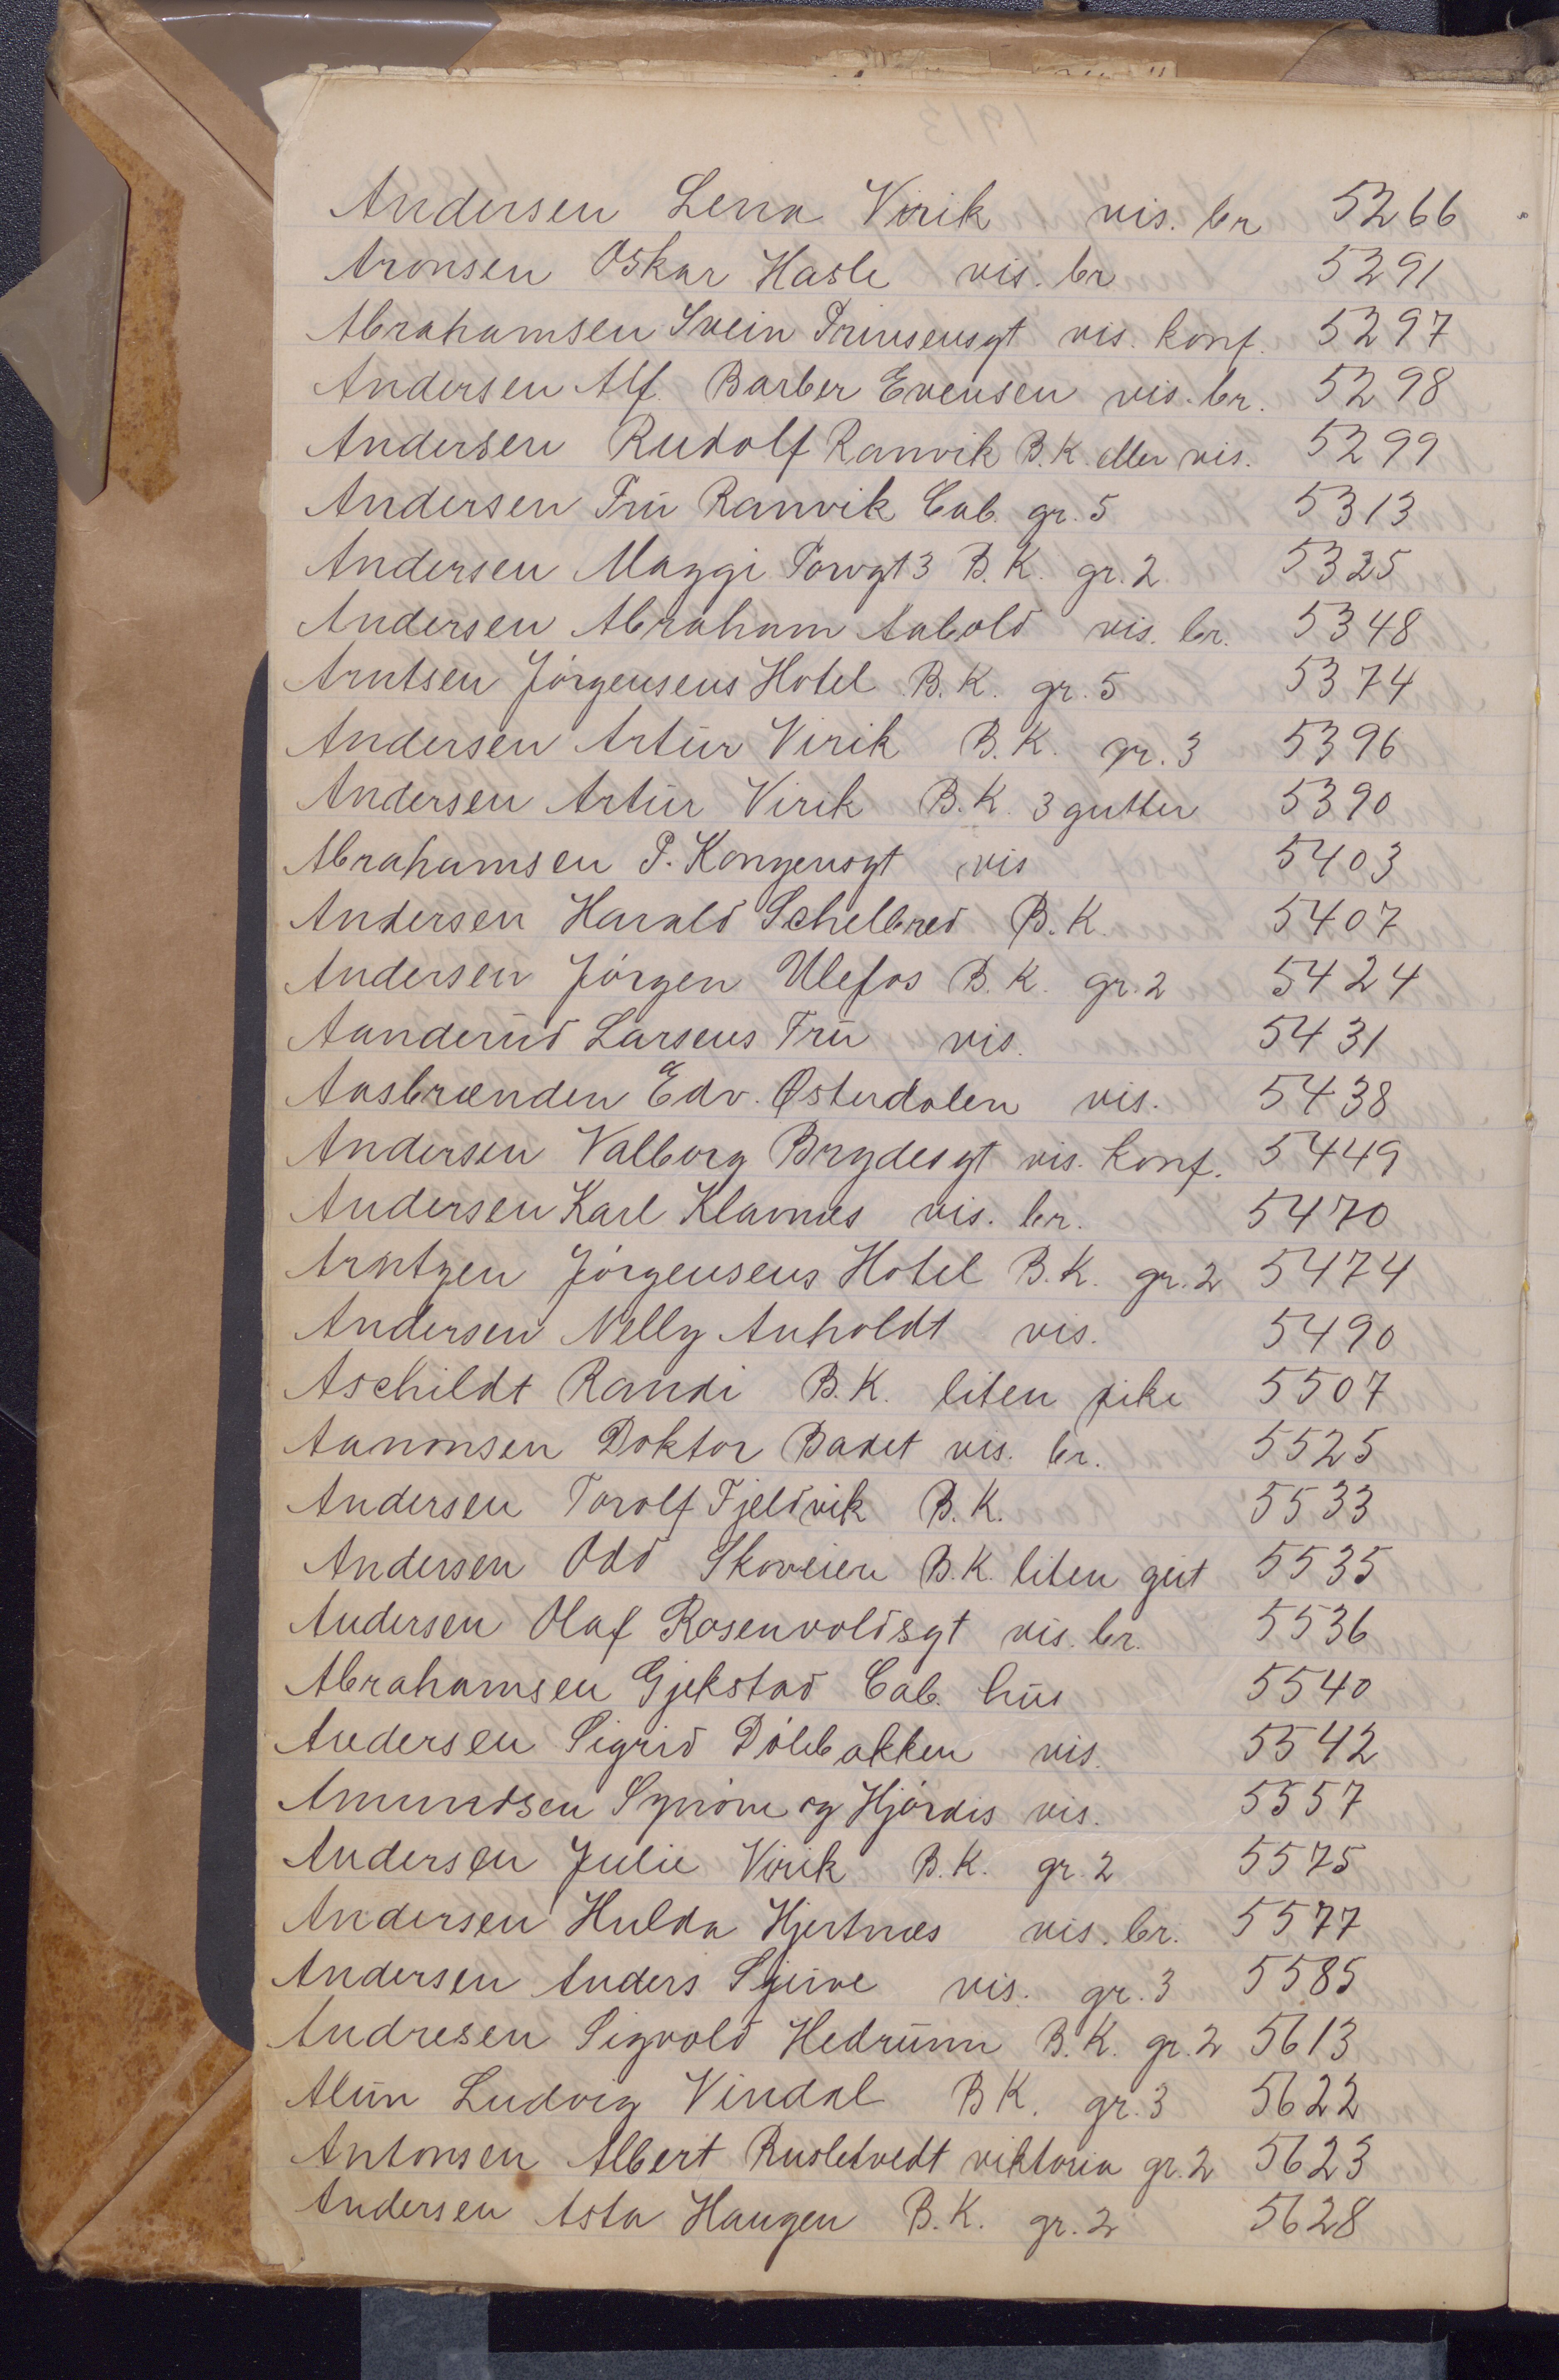 Andersen Lena Virik vis. br 5266
Aronsen Oskar Hasle vis. br 5291
Abrahamsen Svein Prinsensgt vis. konf. 5297
Andersen Alf. Barber Evensen vis. br. 5298
Andersen Rudolf Ranvik B.K. eller vis. 5299
Andersen Fru Ranvik Cab. gr. 5 5313
Andersen Maggi Torvgt 3 B.K. gr. 2 5325
Andersen Abraham Aabold vis. br. 5348
Arntsen Jörgensens Hotel B.K. gr. 5 5374
Andersen Artur Virik B.K. gr. 3 5396
Andersen Artur Virik B.K. 3 gutter 5390
Abrahamsen P. Kongensgt vis 5403
Andersen Harald Schelbred B.K. 5407
Andersen Jörgen Ulefos B.K. gr. 2 5424
Aanderud Larsens Fru vis. 5431
Aasbrænden Edv. Østerdalen vis. 5438
Andersen Valborg Brydesgt vis. konf. 5449
Andersen Karl Klavnæs vis. br. 5470
Arntzen Jörgensens Hotel B.K. gr. 2 5474
Andersen Nelly Anholdt vis. 5490
Aschildt Randi B.K. liten pike 5507
Aanonsen Doktor Badet vis. br. 5525
Andersen Torolf Fjeldvik B.K. 5533
Andersen Odd Skoveien B.K. liten gut 5535
Andersen Olaf Rosenvoldsgt vis. br. 5536
Abrahamsen Gjekstad Cab. hus 5540
Andersen Sigrid Dölebakken vis. 5542
Amundsen Synöve og Hjördis vis. 5557
Andersen Julie Virik B.K. gr. 2 5575
Andersen Hulda Hjertnæs vis. br. 5577
Andersen Anders vis. gr. 3 5585
Andresen Sigvold Hedrum B.K. gr. 2 5613
Alun Ludvig Vindal B K. gr. 3 5622
Antonsen Albert Rusletvedt viktoria gr. 2 5623
Andersen Asta Haugen B.K. gr. 2 5628